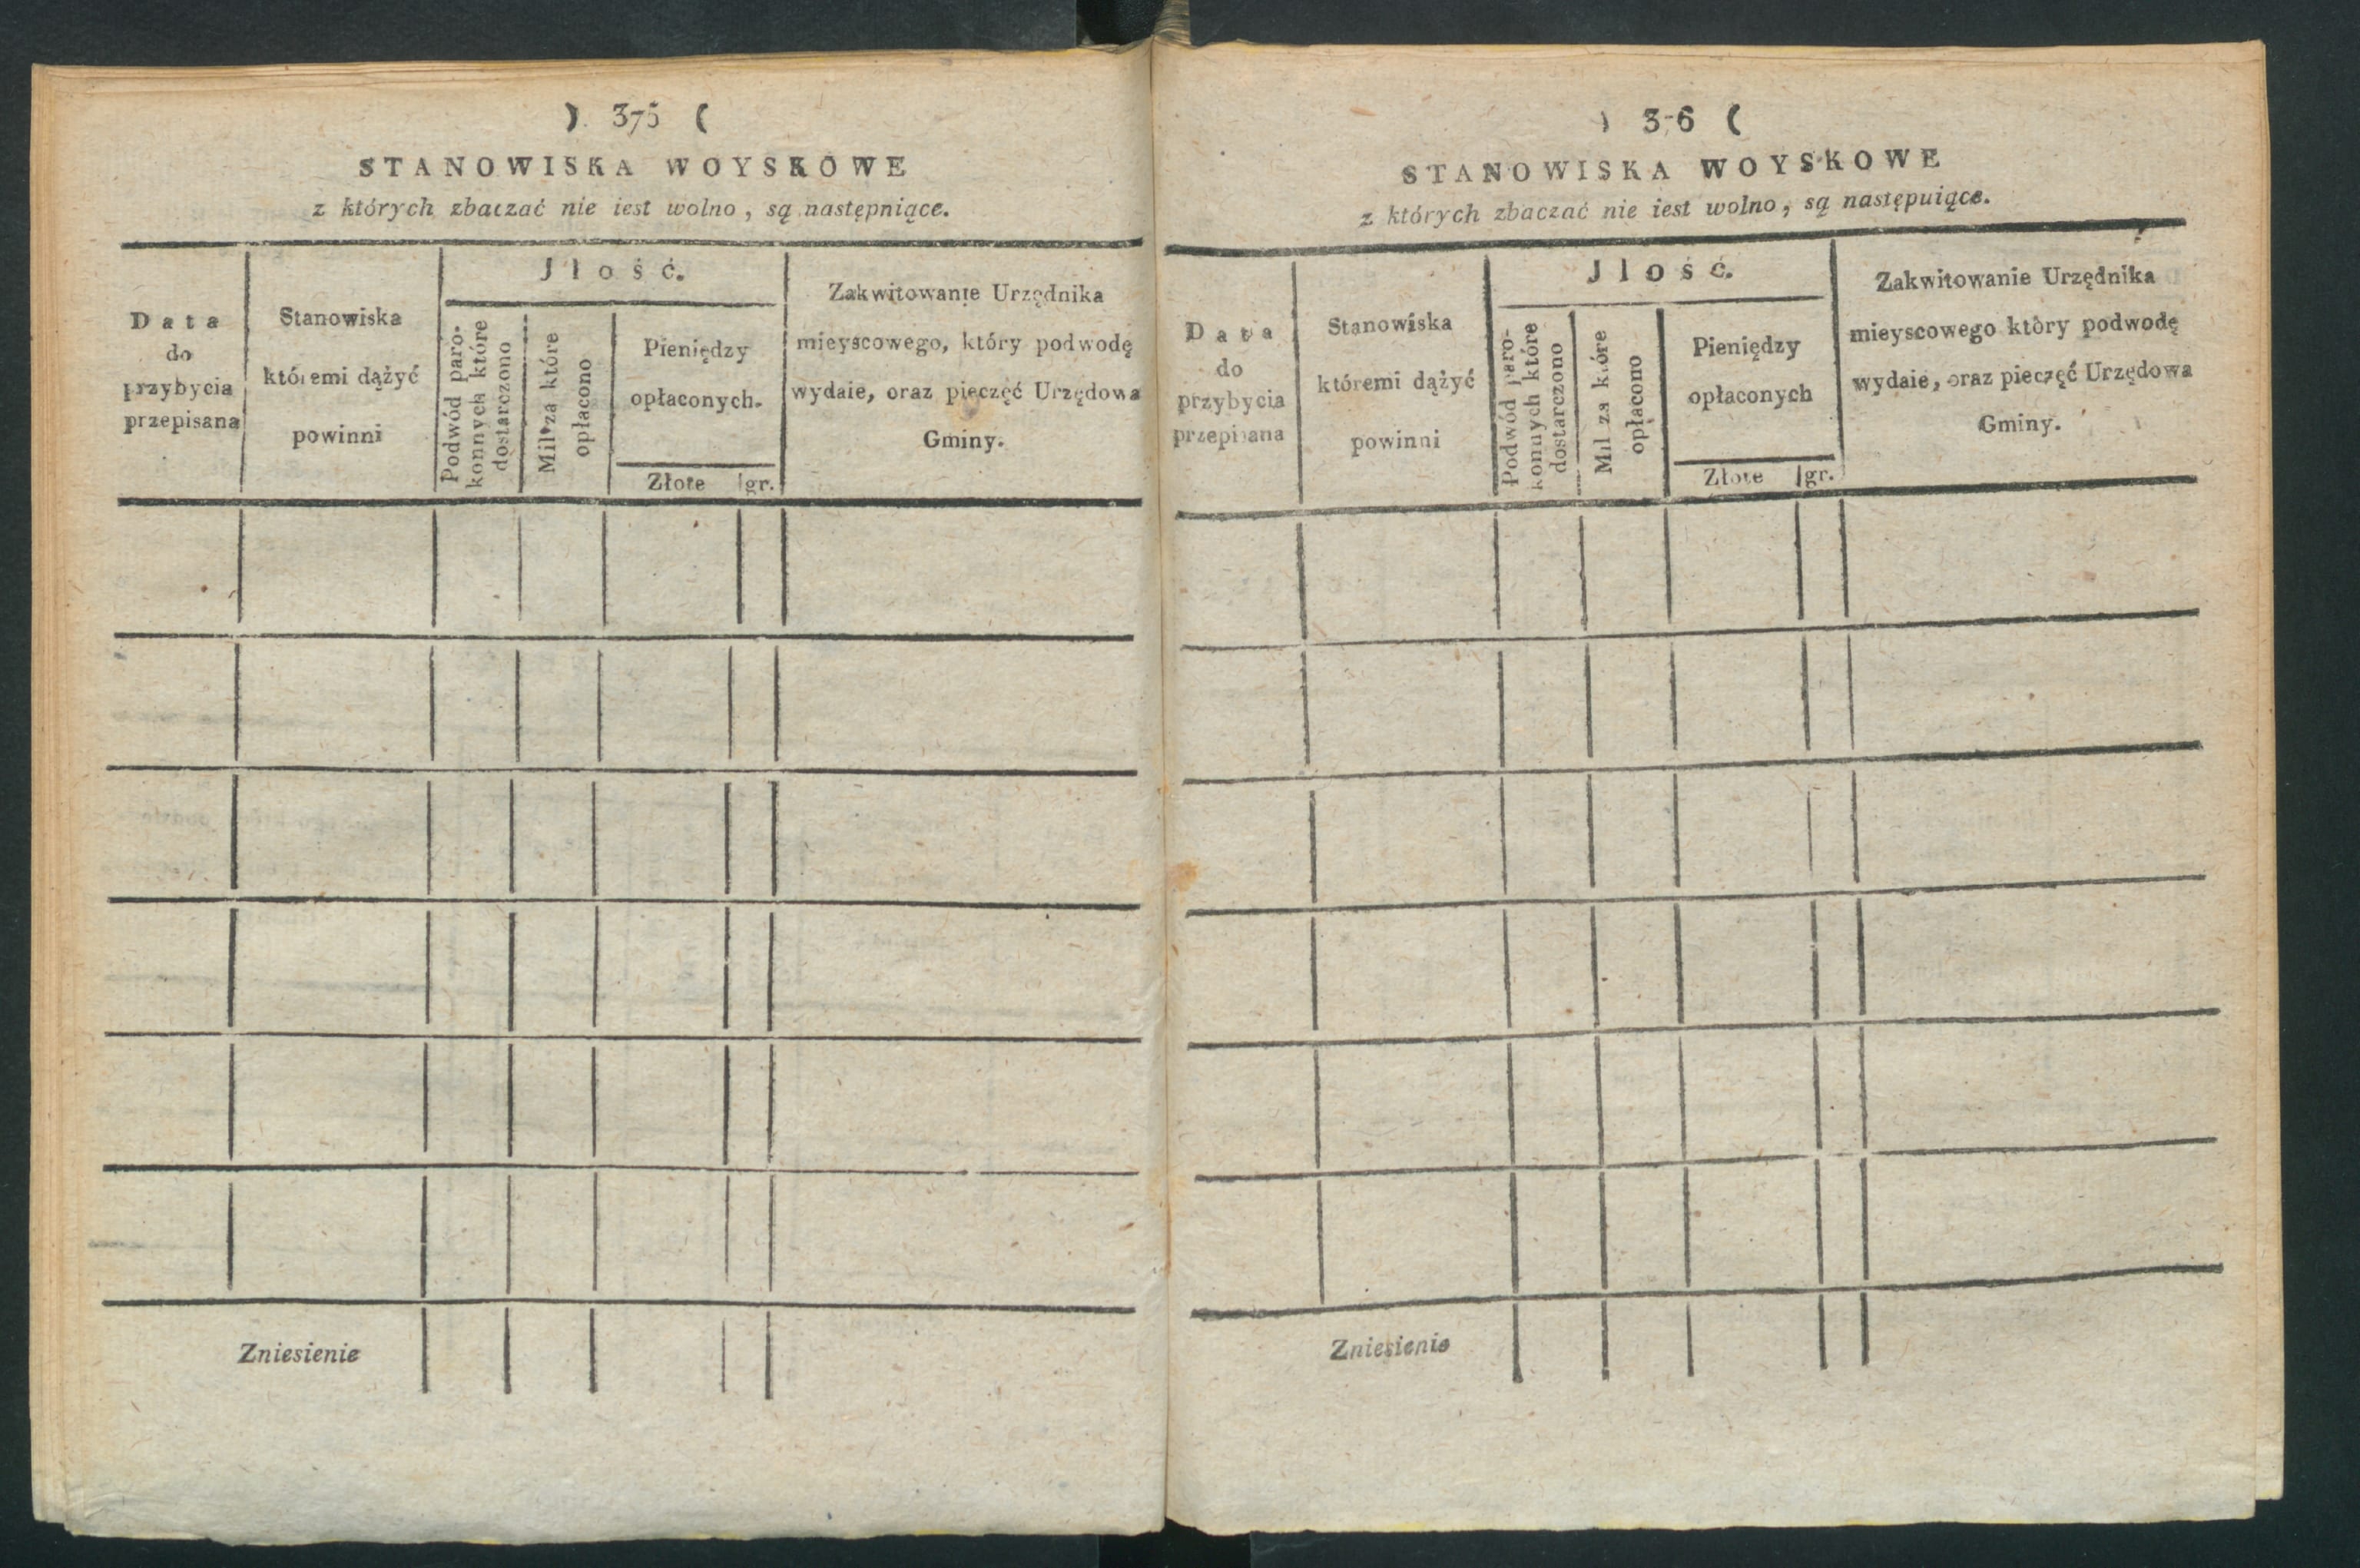 ) 375 (
STANOWISKA WOYSKOWE
z których zbaczać nie iest wolno, są następniące.
Data
do
przybycia
przepisana
Stanowiska
któremi dążyć
powinni
Jlość.
Podwód paro-
konnych które
dostarczono
Mil za które
opłacono
Pieniędzy
opłaconych.
Złote gr.
Zakwitowanie Urzędnika
mieyscowego, który podwodę
wydaie, oraz pieczęć Urzędowa
Gminy.
Zniesienie
) 3 6 (
STANOWISKA WOYSKOWE
z których zbaczać nie iest wolno, są następuiące.
Data
do
przybycia
przepisana
Stanowiska
któremi dążyć
powinni
Jlość.
Podwód paro-
konnych które
dostarczono
Mil za które
opłacono
Pieniędzy
opłaconych
Złote gr.
Zakwitowanie Urzędnika
mieyscowego który podwodę
wydaie, oraz pieczęć Urzędowa
Gminy.
Zniesienie